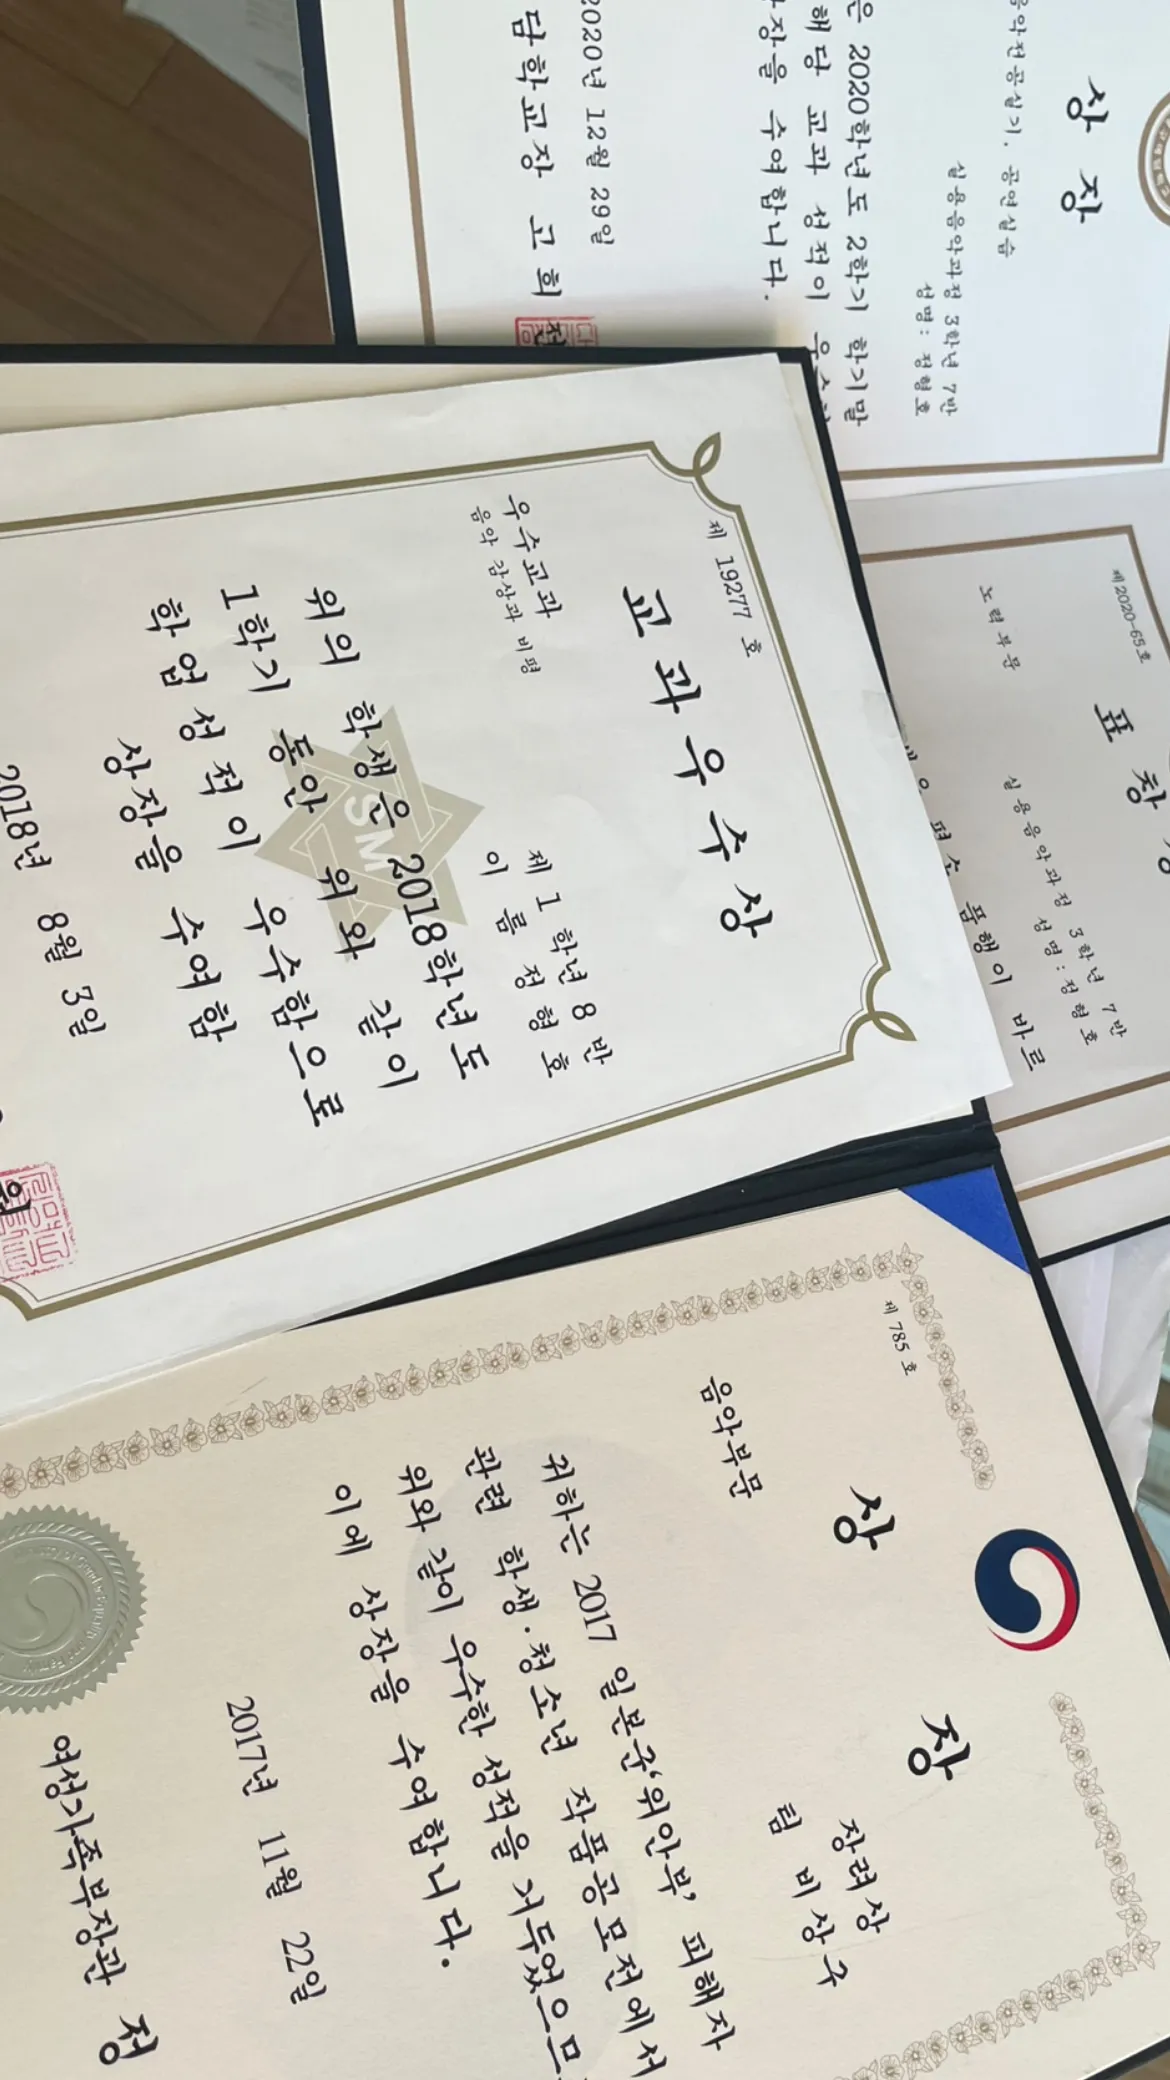 상 장
음악전공실기, 공연실습
실용음악과정 3학년 7반
성명: 정형호
은 2020학년도 2학기 학기말
해당 교과 성적이
장을 수여합니다.
2020년 12월 29일
담학교장 고희전
제2020-65호
표 창
노력부문
실용음악과정 3학년 7반
성명: 정형호
평소 품행이 바르
제 19277 호
교과우수상
우수교과
음악 감상과 비평
제 1 학년 8 반
이 름 정 형 호
위의 학생은 2018학년도
1학기 동안 위와 같이
학업성적이 우수함으로
상장을 수여함
2018년 8월 3일
SM
제 785 호
상 장
음악부문
장려상
팀 비상구
귀하는 2017 일본군‘위안부’ 피해자
관련 학생·청소년 작품공모전에서
위와 같이 우수한 성적을 거두었으므
이에 상장을 수여합니다.
2017년 11월 22일
여성가족부장관 정